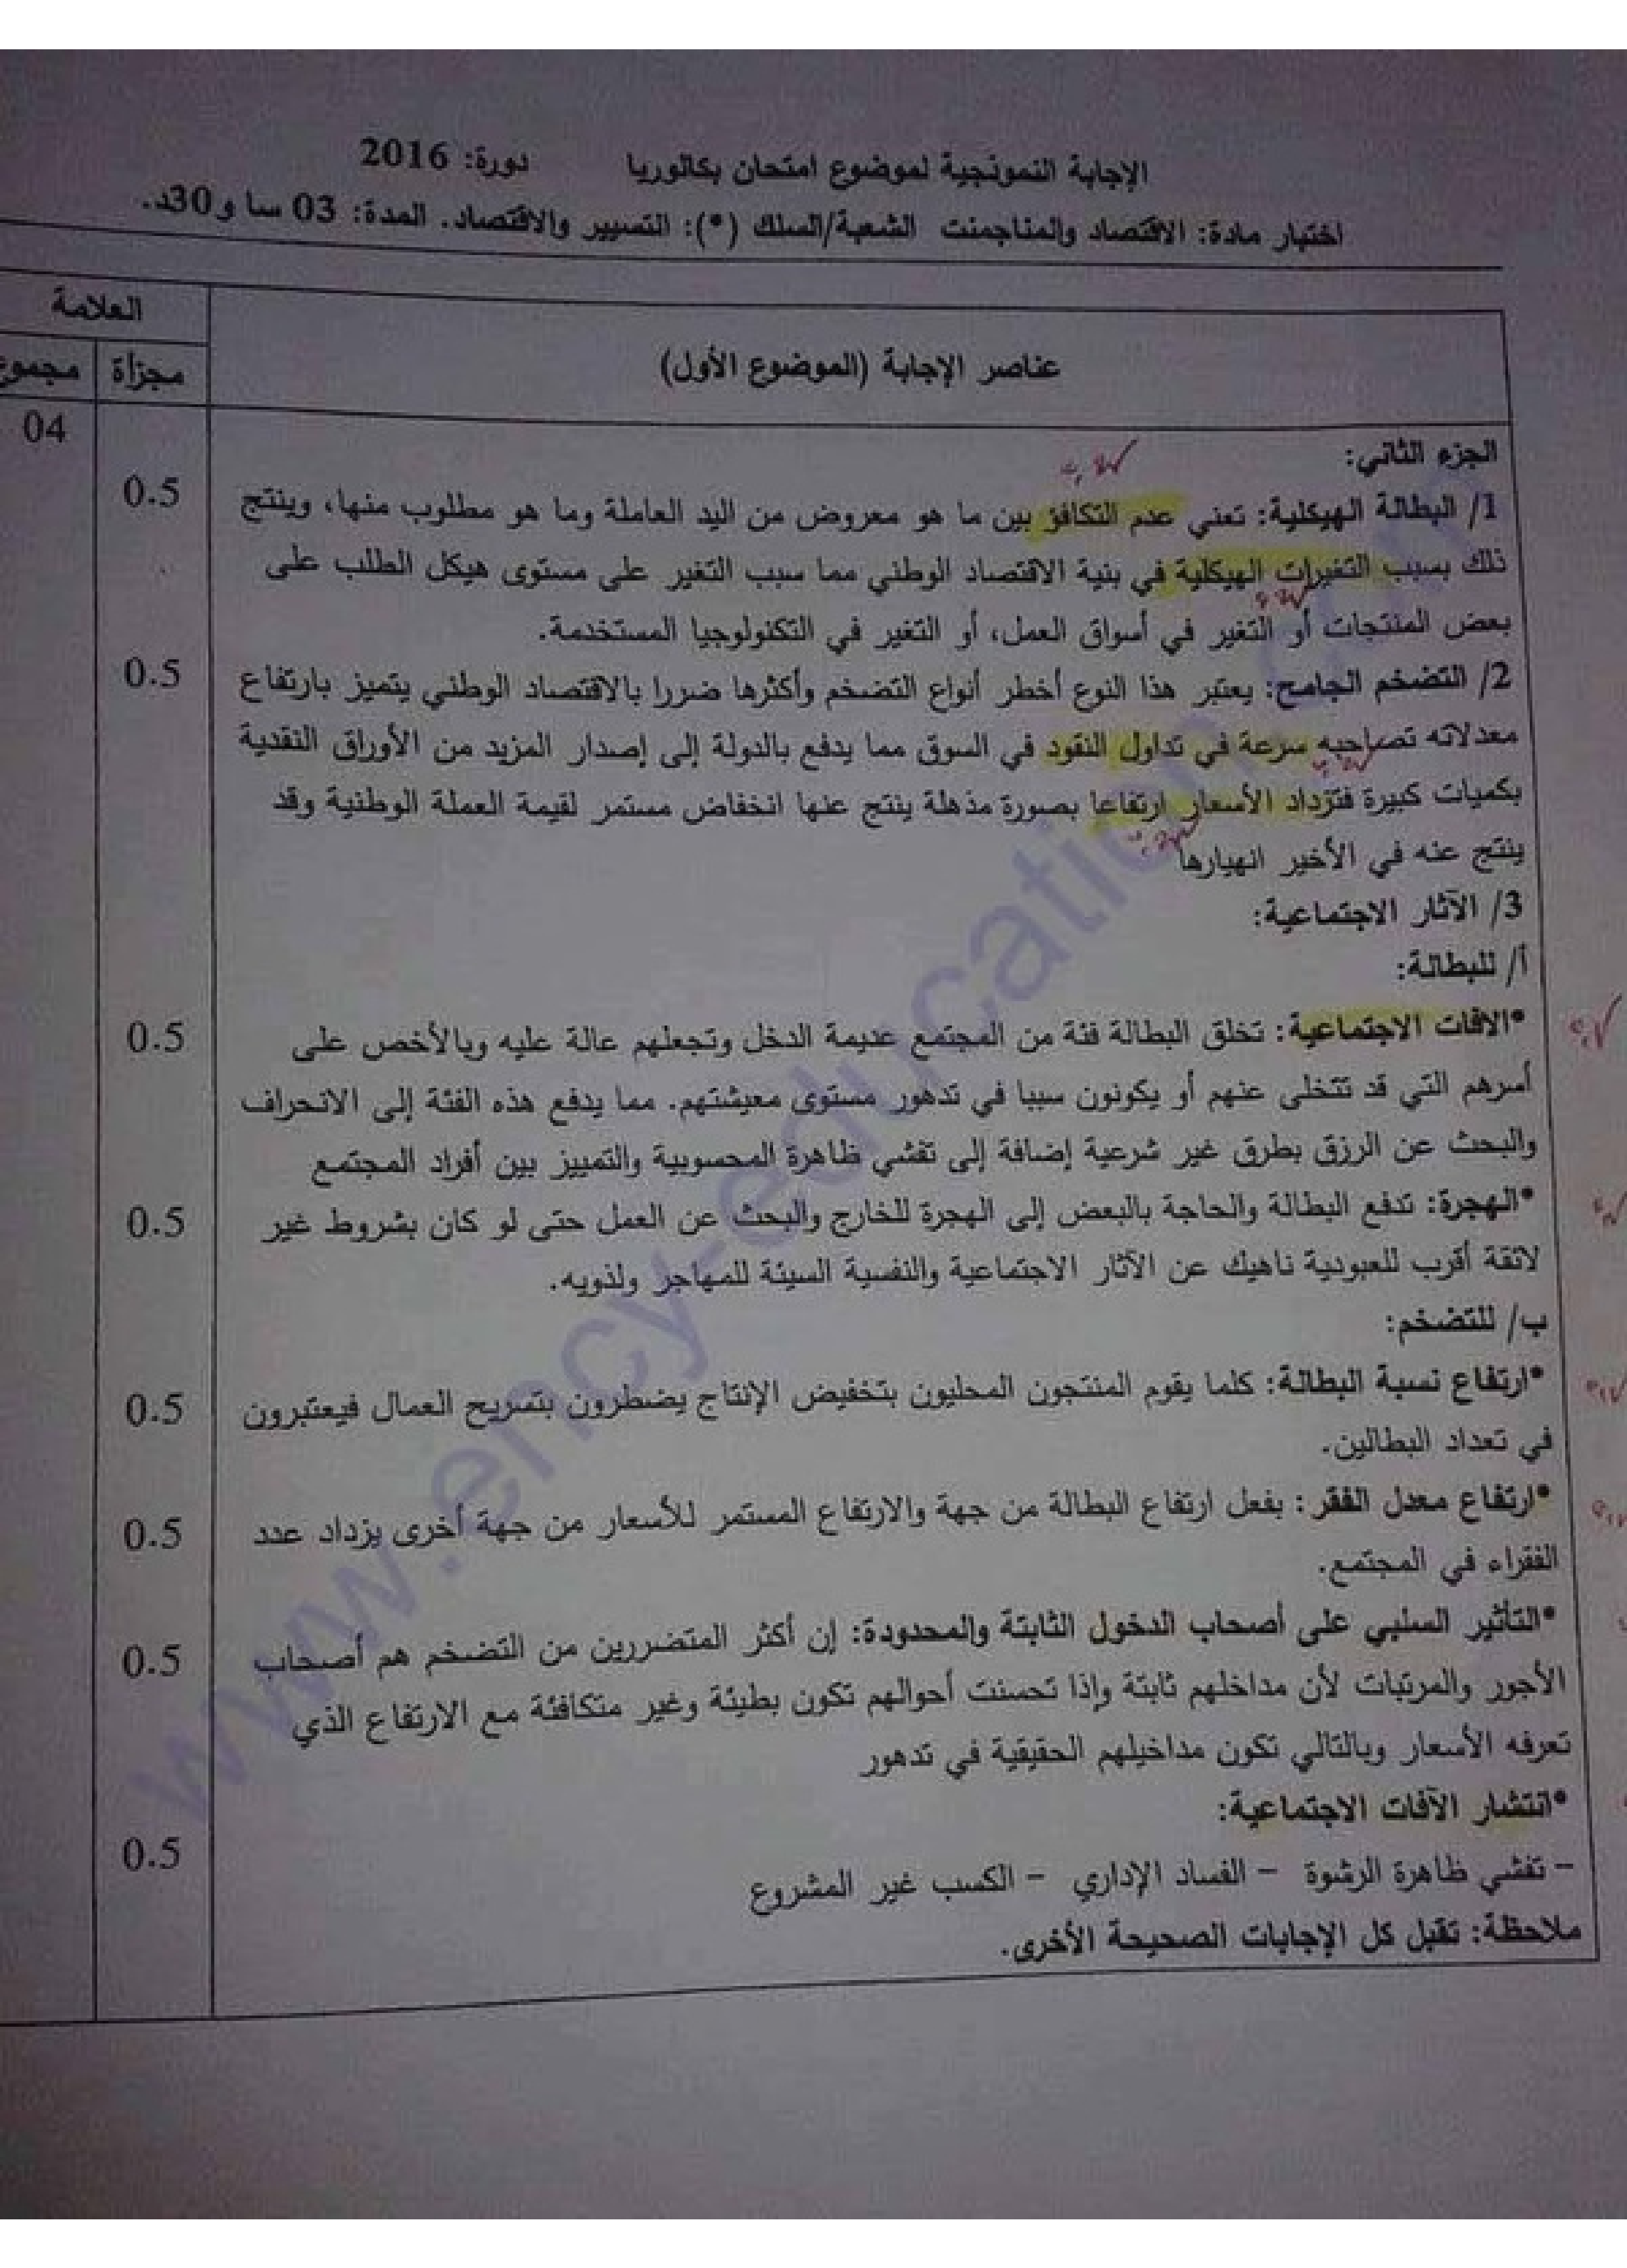 الإجابة النموذجية لموضوع امتحان بكالوريا دورة: 2016
اختبار مادة: الاقتصاد والمناجمنت الشعبة/السلك (*): التسيير والاقتصاد. المدة: 03 سا و30د.
العلامة
عناصر الإجابة (الموضوع الأول)
مجزأة
مجموع
04
الجزء الثاني:
1/ البطالة الهيكلية: تعني عدم التكافؤ بين ما هو معروض من اليد العاملة وما هو مطلوب منها، وينتج
0.5
ذلك بسبب التغيرات الهيكلية في بنية الاقتصاد الوطني مما سبب التغير على مستوى هيكل الطلب على
بعض المنتجات أو التغير في أسواق العمل، أو التغير في التكنولوجيا المستخدمة.
2/ التضخم الجامح: يعتبر هذا النوع أخطر أنواع التضخم وأكثرها ضررا بالاقتصاد الوطني يتميز بارتفاع
0.5
معدلاته تصاحبه سرعة في تداول النقود في السوق مما يدفع بالدولة إلى إصدار المزيد من الأوراق النقدية
بكميات كبيرة فتزداد الأسعار ارتفاعا بصورة مذهلة ينتج عنها انخفاض مستمر لقيمة العملة الوطنية وقد
ينتج عنه في الأخير انهيارها
3/ الآثار الاجتماعية:
أ/ للبطالة:
•الافات الاجتماعية: تخلق البطالة فئة من المجتمع عديمة الدخل وتجعلهم عالة عليه وبالأخص على
0.5
أسرهم التي قد تتخلى عنهم أو يكونون سببا في تدهور مستوى معيشتهم. مما يدفع هذه الفئة إلى الانحراف
والبحث عن الرزق بطرق غير شرعية إضافة إلى تفشي ظاهرة المحسوبية والتمييز بين أفراد المجتمع
•الهجرة: تدفع البطالة والحاجة بالبعض إلى الهجرة للخارج والبحث عن العمل حتى لو كان بشروط غير
0.5
لائقة أقرب للعبودية ناهيك عن الآثار الاجتماعية والنفسية السيئة للمهاجر ولذويه.
ب/ للتضخم:
•ارتفاع نسبة البطالة: كلما يقوم المنتجون المحليون بتخفيض الإنتاج يضطرون بتسريح العمال فيعتبرون
0.5
في تعداد البطالين.
•ارتفاع معدل الفقر: بفعل ارتفاع البطالة من جهة والارتفاع المستمر للأسعار من جهة أخرى يزداد عدد
0.5
الفقراء في المجتمع.
•التأثير السلبي على أصحاب الدخول الثابتة والمحدودة: إن أكثر المتضررين من التضخم هم أصحاب
0.5
الأجور والمرتبات لأن مداخلهم ثابتة وإذا تحسنت أحوالهم تكون بطيئة وغير متكافئة مع الارتفاع الذي
تعرفه الأسعار وبالتالي تكون مداخيلهم الحقيقية في تدهور
•انتشار الآفات الاجتماعية:
0.5
– تفشي ظاهرة الرشوة – الفساد الإداري – الكسب غير المشروع
ملاحظة: تقبل كل الإجابات الصحيحة الأخرى.
www.ency-education.com